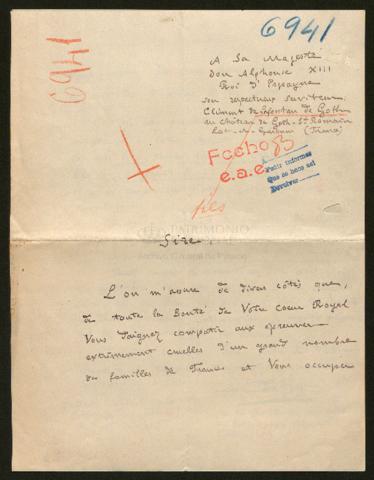 6941
6941
A Sa Majesté
Don Alphonse XIII
Roi d'Espagne
son respectueux serviteur
Clément de de Goth
du château de Goth - St Romain
Lot-&-Garonne (France)
Fecho
e.a.e.
Pedir informes
Que se hace así
Devolver
PATRIMONIO
NACIONAL
Archivo General de Palacio
Sire,
L'on m'assure de divers côtés que,
de toute la Bonté de Votre Coeur Royal
Vous Daignez compatir aux épreuves
extrêmement cruelles d'un grand nombre
de familles de France et Vous occuper